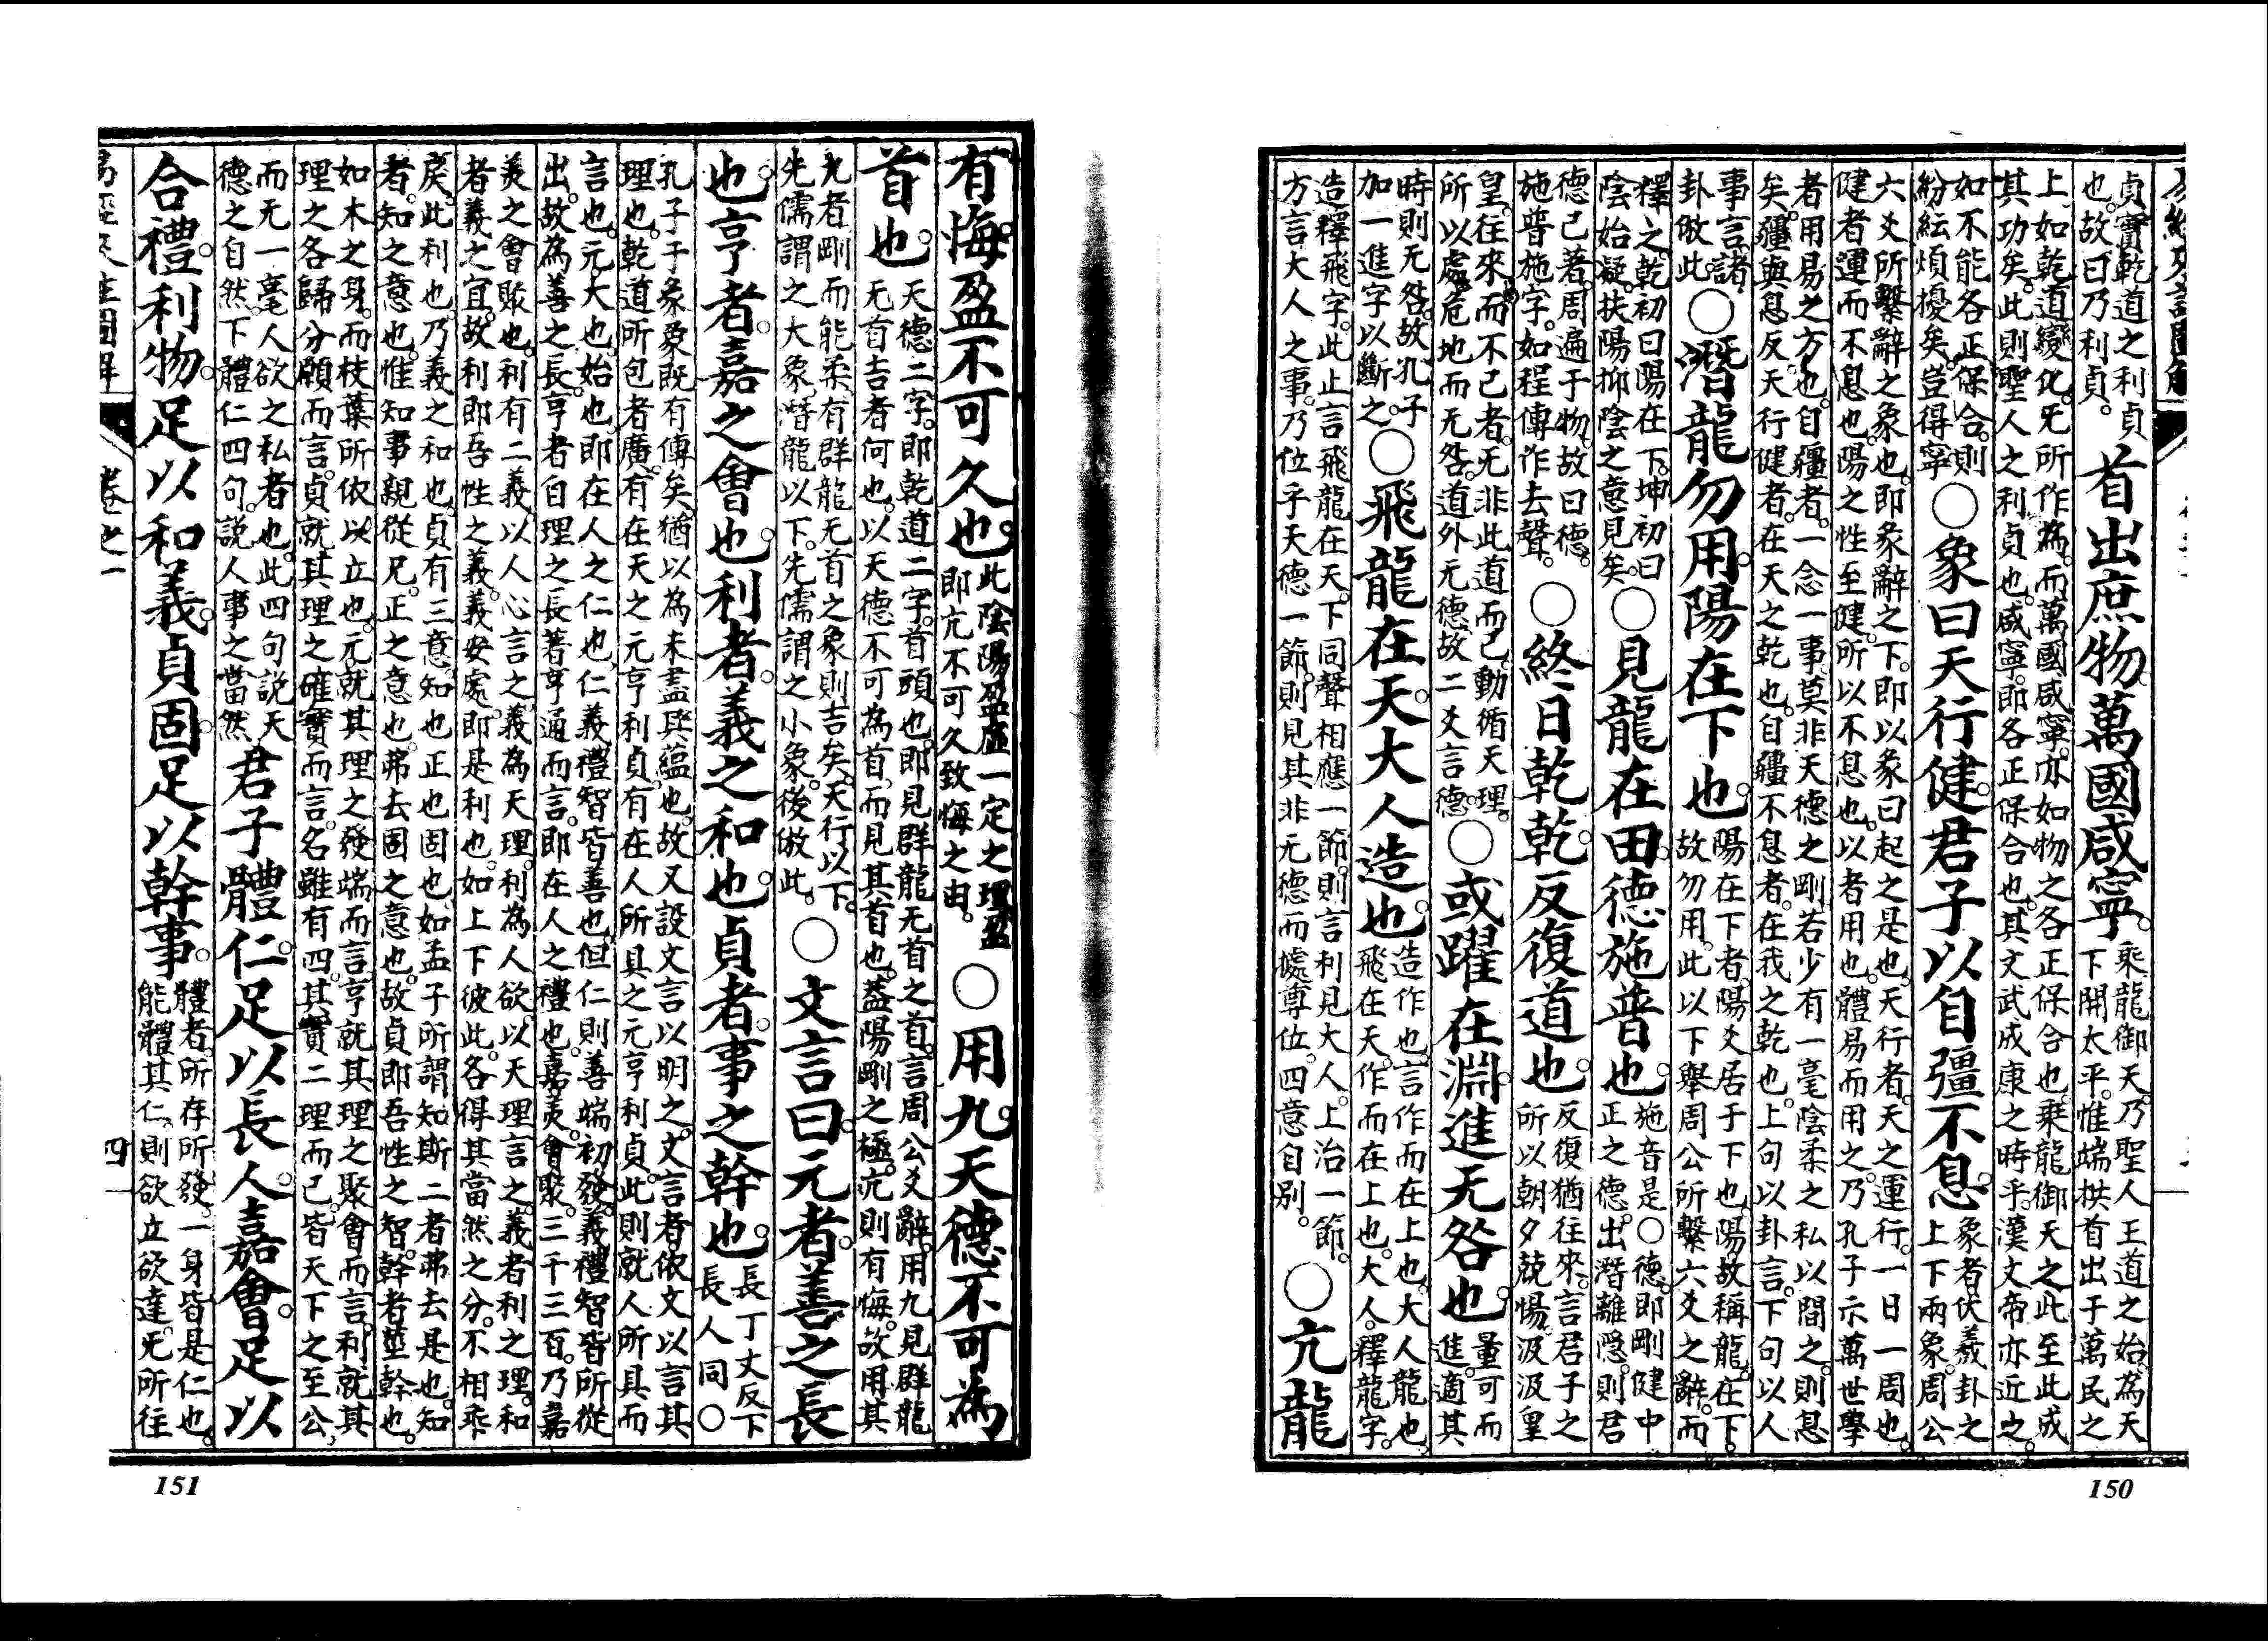 貞實乾道之利貞
也。故曰乃利貞。
首出庶物萬國咸寧。
乘龍御天。乃聖人王道之始。為天
下開太平。惟端拱首出于萬民之
上。如乾道變化。无所作為。而萬國咸寧。亦如物之各正保合也。乘龍御天之此至此成
其功矣。此則聖人之利貞也。咸寧。即各正保合也。其文武成康之時乎。漢文帝亦近之。
如不能各正保合。則
紛紜煩擾矣。豈得寧
○象曰天行健。君子以自彊不息。
象者。伏羲卦之
上下兩象。周公
六爻所繫辭之象也。即彖辭之下。即以象曰起之是也。天行者。天之運行。一日一周也。
健者運而不息也。陽之性至健。所以不息也。以者用也。體易而用之。乃孔子示萬世學
者用易之方也。自彊者。一念一事。莫非天德之剛。若少有一毫陰柔之私以間之。則息
矣。彊與息反。天行健者。在天之乾也。自彊不息者。在我之乾也。上句以卦言。下句以人
事言。諸
卦倣此。
○潛龍勿用。陽在下也。
陽在下者。陽爻居于下也。陽故稱龍。在下。
故勿用。此以下舉周公所繫六爻之辭。而
釋之。乾初曰陽在下。坤初曰
陰始凝。扶陽抑陰之意見矣。
○見龍在田。德施普也。
施音是○德。即剛健中
正之德。出潛離隱。則君
德已著。周遍于物。故曰德
施普。施字。如程傳作去聲。
○終日乾乾。反復道也。
反復猶往來。言君子之
所以朝夕兢惕汲汲皇
皇。往來而不已者。无非此道而已。動循天理。
所以處危地而无咎。道外无德。故二爻言德。
○或躍在淵。進无咎也。
量可而
進。適其
時則无咎。故孔子
加一進字以斷之。
○飛龍在天。大人造也。
造作也。言作而在上也。大人龍也。
飛在天。作而在上也。大人。釋龍字。
造釋飛字。此止言飛龍在天。下同聲相應一節。則言利見大人。上治一節。
方言大人之事。乃位乎天德一節。則見其非无德而據尊位。四意自別。
○亢龍
150
有悔。盈不可久也。
此陰陽盈虛一定之理。盈
即亢。不可久。致悔之由。
○用九。天德不可為
首也。
天德二字。即乾道二字。首頭也。即見群龍无首之首。言周公爻辭。用九見群龍
无首吉者何也。以天德不可為首。而見其首也。蓋陽剛之極。亢則有悔。故用其
九者。剛而能柔。有群龍无首之象則吉矣。天行以下。
先儒謂之大象。潛龍以下。先儒謂之小象。後倣此。
○文言曰。元者。善之長
也。亨者。嘉之會也。利者。義之和也。貞者。事之幹也。
長丁丈反。下
長人同○
孔子于彖象既有傳矣。猶以為未盡其蘊也。故又設文言以明之。文言者。依文以言其
理也。乾道所包者廣。有在天之元亨利貞。有在人所具之元亨利貞。此則就人所具而
言也。元。大也。始也。即在人之仁也。仁義禮智皆善也。但仁則善端初發。義禮智皆所從
出。故為善之長。亨者。自理之長著亨通而言。即在人之禮也。嘉美會聚。三千三百。乃嘉
美之會聚也。利有二義。以人心言之。義為天理。利為人欲。以天理言之。義者利之理。和
者義之宜。故利即吾性之義。義安處。即是利也。如上下彼此。各得其當然之分。不相乖
戾。此利也。乃義之和也。貞有三意。知也正也固也。如孟子所謂知斯二者弗去是也。知
者。知之意也。惟知事親從兄。正之意也。弗去。固之意也。故貞即吾性之智。幹者。莖幹也。
如木之身。而枝葉所依以立也。元就其理之發端而言。亨就其理之聚會而言。利就其
理之各歸分願而言。貞就其理之確實而言。名雖有四。其實二理而已。皆天下之至公。
而无一毫人欲之私者也。此四句說天
德之自然。下體仁四句。說人事之當然
君子體仁足以長人。嘉會。足以
合禮。利物。足以和義。貞固。足以幹事。
體者。所存所發。一身皆是仁也。
能體其仁。則欲立欲達。无所往
卷之一
四
151